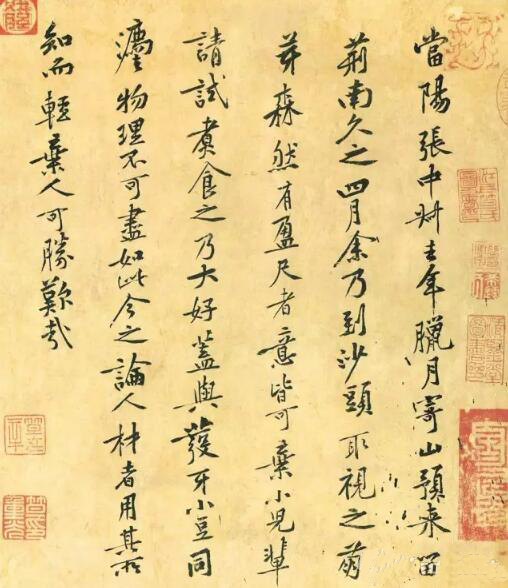 當陽張中叔去年臘月寄山預來留
荊南久之四月余乃到沙頭取視之萌
芽森然有盈尺者意皆可棄小兒輩
請試煑食之乃大好蓋與發牙小豆同
灋物理不可盡如此今之論人材者用其所
知而輕棄人可勝歎哉